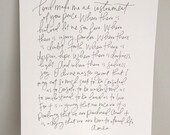 Lord make me an instrument
of your peace. Where there is
hatred let me sow love. Where
there is injury, pardon. Where
there is doubt, faith. Where there is
despair, hope. Where there is darkness
light. And where there is sadness
joy. O divine master grant that I
may not so much seek to be consoled
as to console, to be understood as
to understand, to be loved as to
love. For it is in giving that we receive. It is in
pardoning that we are pardoned. And it
is in dying that we are born to eternal life.
Amen